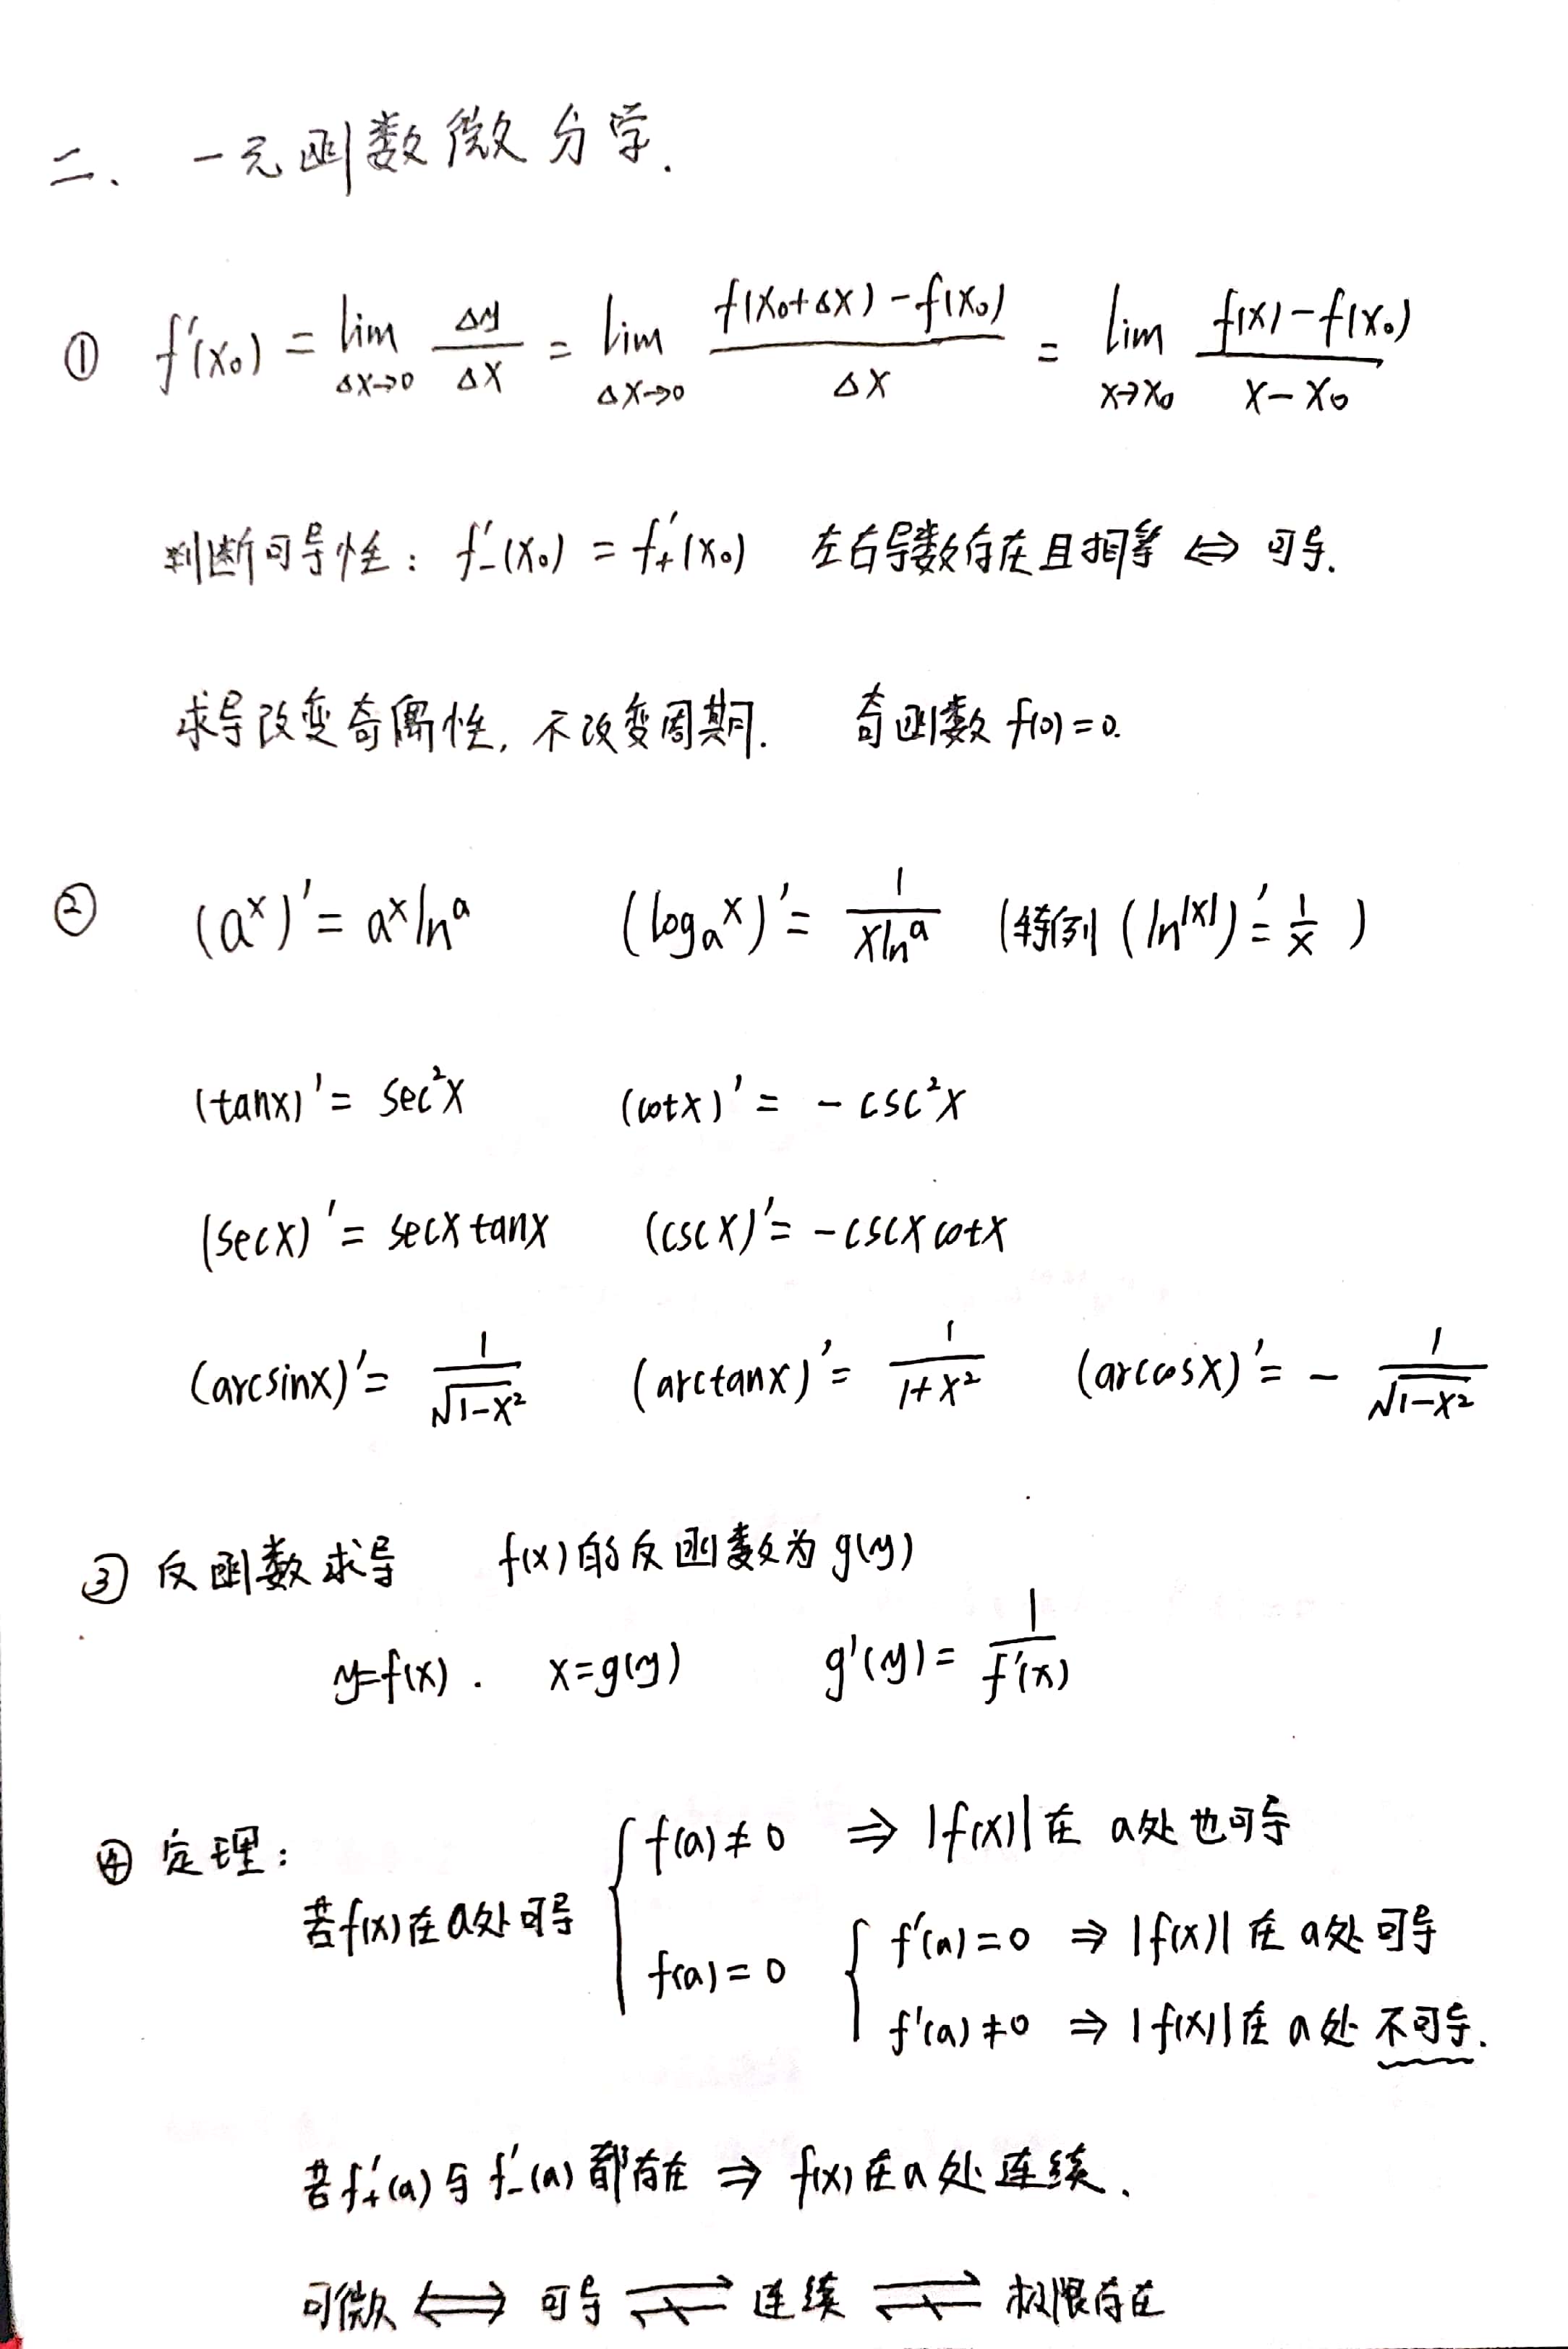 二、一元函数微分学.
① f'(x₀) = lim Δx→0 Δy/Δx = lim Δx→0 (f(x₀+Δx)-f(x₀))/Δx = lim x→x₀ (f(x)-f(x₀))/(x-x₀)
判断可导性: f'₋(x₀) = f'₊(x₀) 左右导数存在且相等 ⇔ 可导.
求导改变奇偶性, 不改变周期. 奇函数 f(0)=0.
② (aˣ)' = aˣlnᵃ (logₐˣ)' = 1/(xlnᵃ) (特例 (ln|x|)' = 1/x )
(tanx)' = sec²x (cotx)' = -csc²x
(secx)' = secxtanx (cscx)' = -cscxcotx
(arcsinx)' = 1/√(1-x²) (arctanx)' = 1/(1+x²) (arccosx)' = - 1/√(1-x²)
③ 反函数求导 f(x)的反函数为g(y)
y=f(x). x=g(y) g'(y) = 1/f'(x)
④ 定理:
若f(x)在a处可导 { f(a)≠0 ⇒ |f(x)|在 a处也可导
f(a)=0 { f'(a)=0 ⇒ |f(x)|在 a处可导
f'(a)≠0 ⇒ |f(x)|在 a处 不可导.
若f'₊(a)与f'₋(a)都存在 ⇒ f(x)在a处连续.
可微 ⇔ 可导 ⇌̸ 连续 ⇌̸ 极限存在